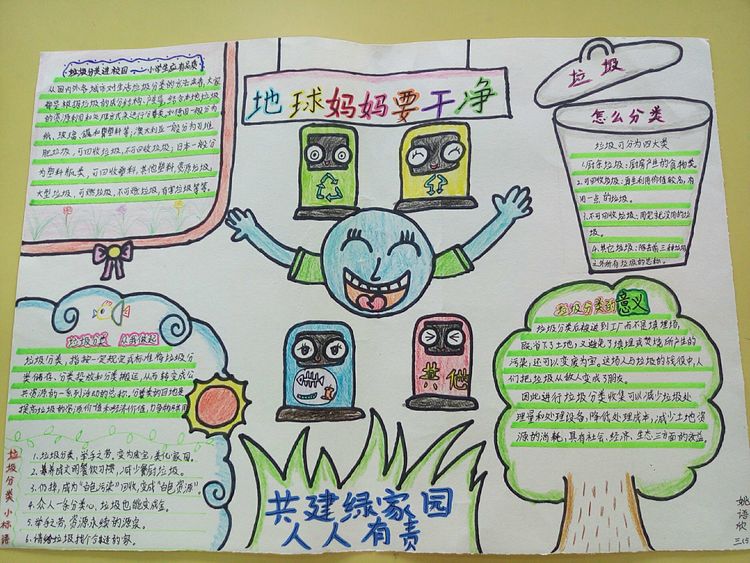 垃圾分类进校园——小学生应有品质
从国内外各城市对生活垃圾分类的方法来看,大家
都是根据垃圾的成分构构、产量,结合本地垃圾
的资源利用和处理方式来进行分类。如德国一般分为
纸、玻璃、罐和塑塑料等;澳大利亚一般分为可堆
肥垃圾,可回收垃圾,不可回收垃圾,日本一般分
为塑料瓶类,可回收塑料,其他塑料,资源垃圾,
大型垃圾,可燃垃圾,不可燃垃圾,有害垃圾等等。
地球妈妈要干净
垃圾
怎么分类
垃圾可分为四大类
1.厨余垃圾:厨房产生的食物类
2.可回收垃圾:再生利用价值较高,有
用一点的垃圾。
3.不可回收垃圾:同它就没用的垃
圾。
4.其它垃圾:除去前三种垃圾
之外所有垃圾的总称。
垃圾分类 从我做起
垃圾分类,指按一定规定或标准将垃圾分
类储存、分类投放和分类搬运,从而转变成公
共资源的一系列活动的总称。分类的目的是
提高垃圾的资源价值和经济价值,力争物尽其用
其他
垃圾分类的意义
垃圾分类后被送到工厂而不是填埋场,
既省下了土地,又避免了填埋或焚烧所产生的
污染,还可以变废为宝。这场人与垃圾的战役中,人
们把垃圾从敌人变成了朋友。
因此进行垃圾分类收集可以减少垃圾处
理量和处理设备,降低处理成本,减少土地资
源的消耗,具有社会、经济、生态三方面的效益。
垃圾分类小标语
1.垃圾分类,举手之劳,变为废宝,美化家园。
2.养成文明餐饮习惯,减少餐厨垃圾。
3.分捡,成为“白色污染”回收,变成“白色资源”。
4.众人一条分类心,垃圾也能变成金。
5.举手之劳,资源永续的源泉。
6.请给垃圾找个合适的家。
共建绿家园
人人有责
姚语欣
三(5